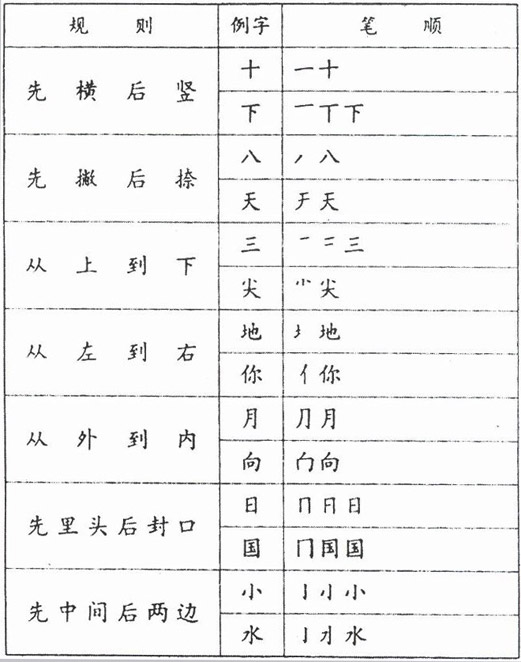 规则 例字 笔顺
先横后竖 十 一十
下 一丅下
先撇后捺 八 丿八
天 天
从上到下 三 一二三
尖 ⺌尖
从左到右 地 地
你 亻你
从外到内 月 ⺆月
向 向
先里头后封口 日 冂日
国 冂国国
先中间后两边 小 亅小
水 亅水